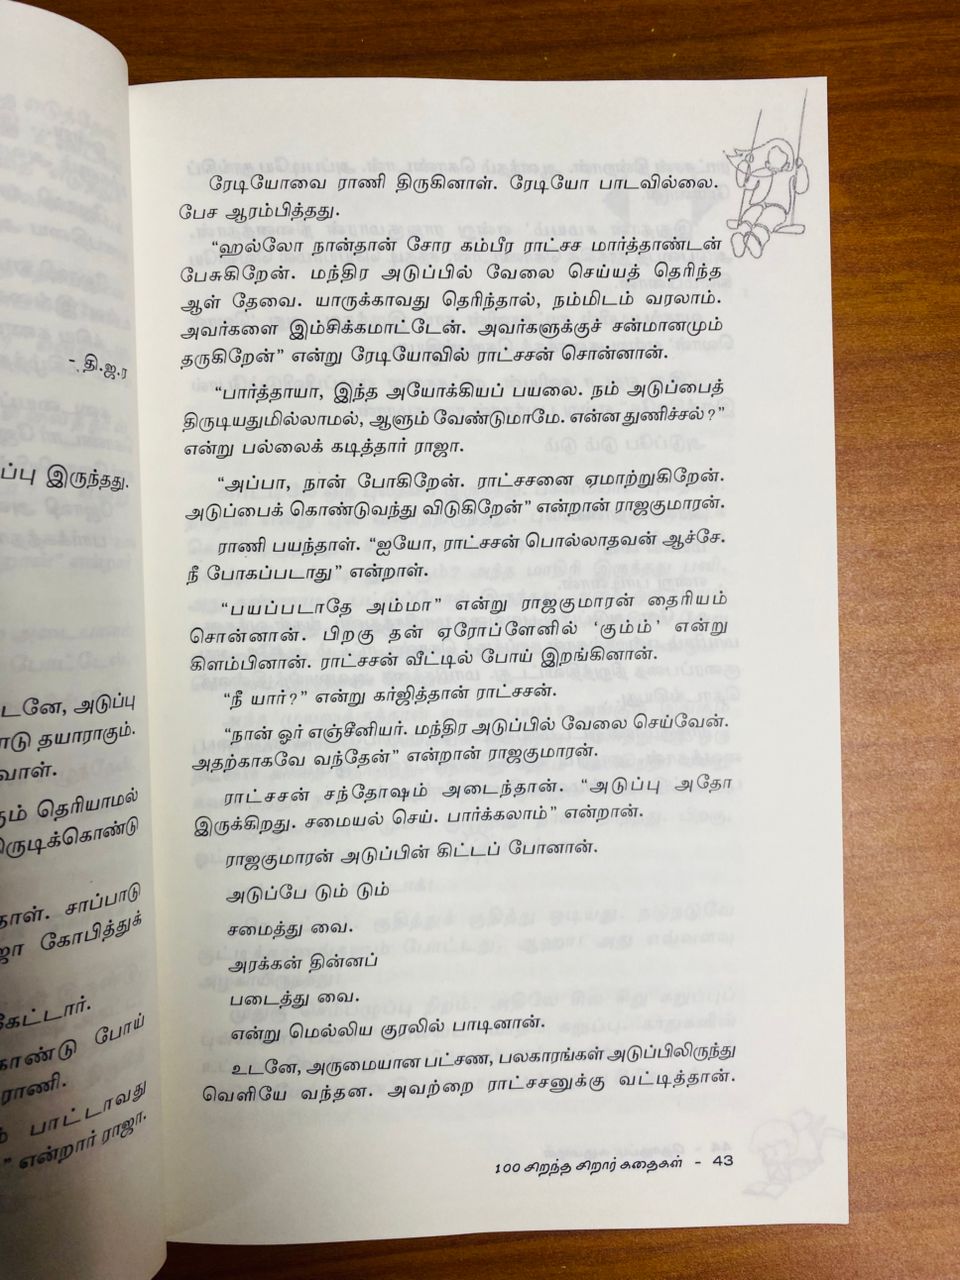 - தி.ஜ.ர
ப்பு இருந்தது.
டனே, அடுப்பு
டு தயாராகும்.
வாள்.
ம் தெரியாமல்
ருடிக்கொண்டு
தாள். சாப்பாடு
ஜா கோபித்துக்
கேட்டார்.
காண்டு போய்
ராணி.
பாட்டாவது
" என்றார் ராஜா.
ரேடியோவை ராணி திருகினாள். ரேடியோ பாடவில்லை.
பேச ஆரம்பித்தது.
"ஹல்லோ நான்தான் சோர கம்பீர ராட்சச மார்த்தாண்டன்
பேசுகிறேன். மந்திர அடுப்பில் வேலை செய்யத் தெரிந்த
ஆள் தேவை. யாருக்காவது தெரிந்தால், நம்மிடம் வரலாம்.
அவர்களை இம்சிக்கமாட்டேன். அவர்களுக்குச் சன்மானமும்
தருகிறேன்" என்று ரேடியோவில் ராட்சசன் சொன்னான்.
"பார்த்தாயா, இந்த அயோக்கியப் பயலை. நம் அடுப்பைத்
திருடியதுமில்லாமல், ஆளும் வேண்டுமாமே. என்ன துணிச்சல்?"
என்று பல்லைக் கடித்தார் ராஜா.
"அப்பா, நான் போகிறேன். ராட்சசனை ஏமாற்றுகிறேன்.
அடுப்பைக் கொண்டுவந்து விடுகிறேன்" என்றான் ராஜகுமாரன்.
ராணி பயந்தாள். "ஐயோ, ராட்சசன் பொல்லாதவன் ஆச்சே.
நீ போகப்படாது" என்றாள்.
"பயப்படாதே அம்மா" என்று ராஜகுமாரன் தைரியம்
சொன்னான். பிறகு தன் ஏரோப்ளேனில் 'கும்ம்' என்று
கிளம்பினான். ராட்சசன் வீட்டில் போய் இறங்கினான்.
"நீ யார்?" என்று கர்ஜித்தான் ராட்சசன்.
"நான் ஓர் எஞ்சீனியர். மந்திர அடுப்பில் வேலை செய்வேன்.
அதற்காகவே வந்தேன்" என்றான் ராஜகுமாரன்.
ராட்சசன் சந்தோஷம் அடைந்தான். "அடுப்பு அதோ
இருக்கிறது. சமையல் செய். பார்க்கலாம்" என்றான்.
ராஜகுமாரன் அடுப்பின் கிட்டப் போனான்.
அடுப்பே டும் டும்
சமைத்து வை.
அரக்கன் தின்னப்
படைத்து வை.
என்று மெல்லிய குரலில் பாடினான்.
உடனே, அருமையான பட்சண, பலகாரங்கள் அடுப்பிலிருந்து
வெளியே வந்தன. அவற்றை ராட்சசனுக்கு வட்டித்தான்.
100 சிறந்த சிறார் கதைகள் - 43